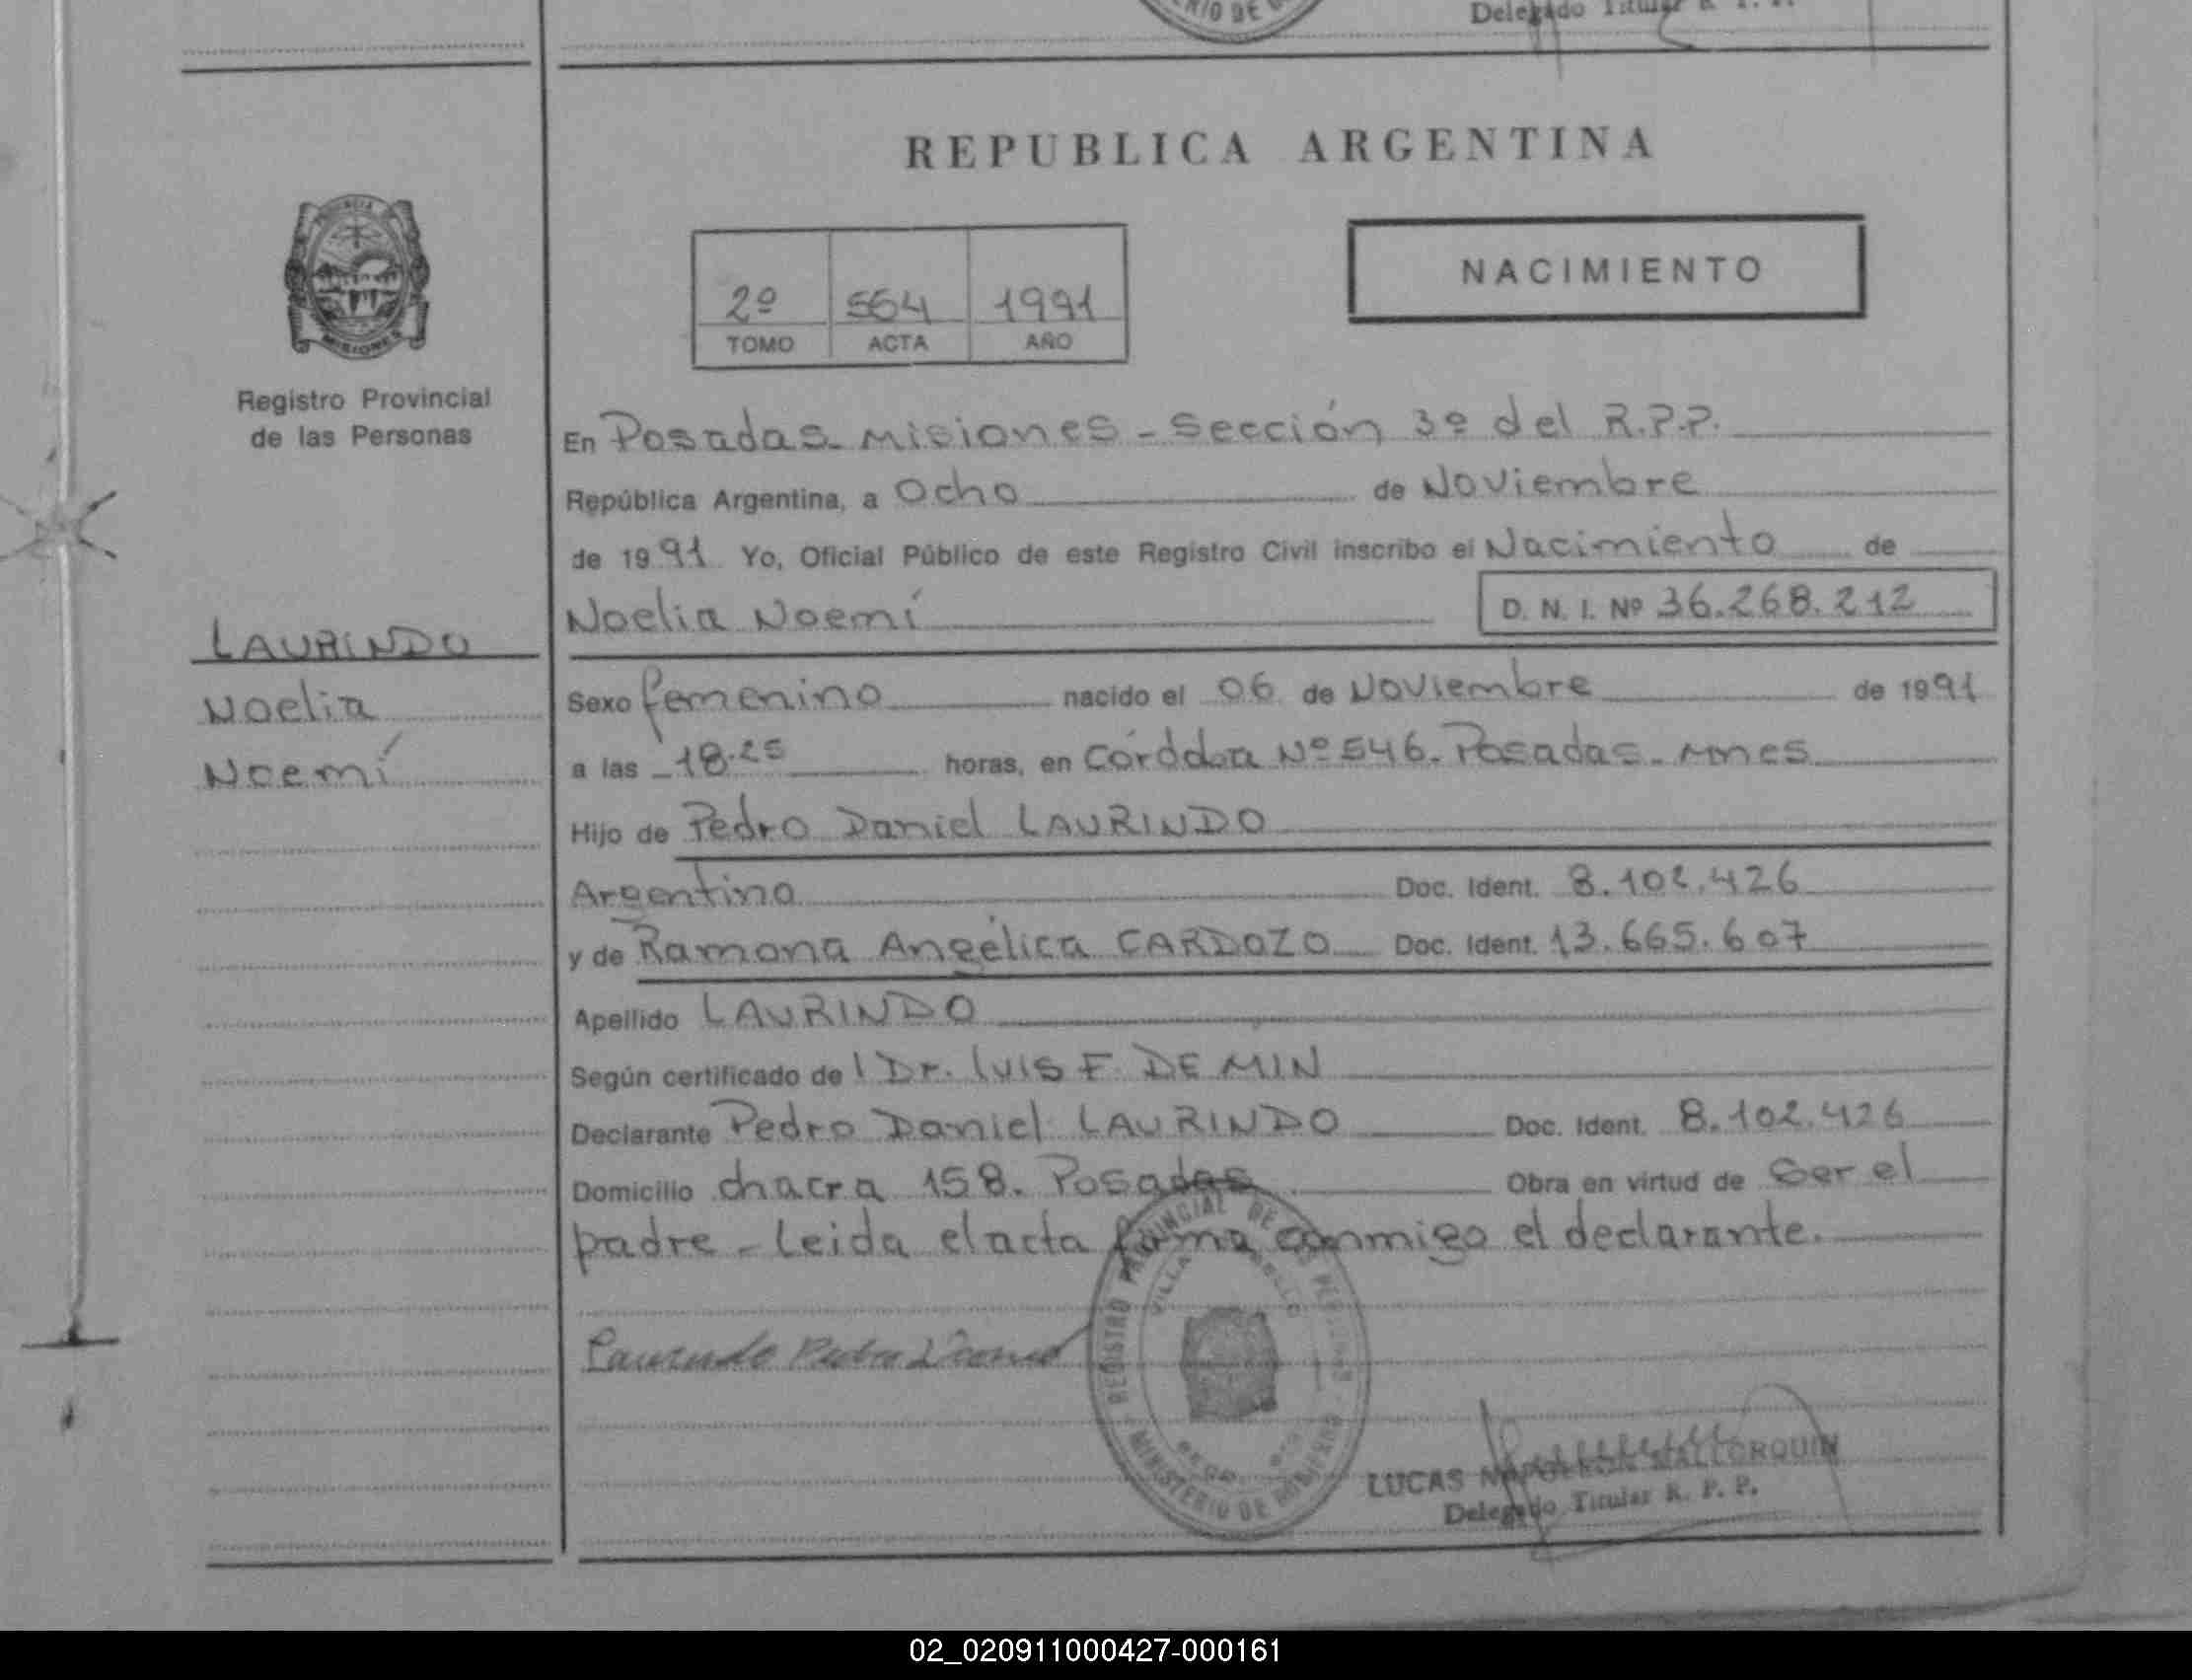 Delegado Titular R. P. P.
REPUBLICA ARGENTINA
PROVINCIA DE
MISIONES
Registro Provincial
de las Personas
2º 564 1991
TOMO ACTA AÑO
NACIMIENTO
En Posadas - Misiones - Sección 3º del R.P.P.
República Argentina, a Ocho de Noviembre
de 1991 Yo, Oficial Público de este Registro Civil inscribo el Nacimiento de
Noelia Noemí D. N. I. Nº 36.268.212
LAURINDO
Noelia
Noemí
Sexo femenino nacido el 06 de Noviembre de 1991
a las 18.25 horas, en Córddba Nº 546. Posadas - Mnes
Hijo de Pedro Daniel LAURINDO
Argentino Doc. Ident. 8.102.426
y de Ramona Angélica CARDOZO Doc. Ident. 13.665.607
Apellido LAURINDO
Según certificado de l Dr. Luis F. DE MIN
Declarante Pedro Daniel LAURINDO Doc. Ident. 8.102.426
Domicilio chacra 158. Posadas Obra en virtud de Ser el
padre - Leida el acta firma conmigo el declarante.
REGISTRO PROVINCIAL DE LAS PERSONAS
VILLA
MINISTERIO DE GOBIERNO
Laurindo Pedro Daniel
LUCAS NAPOLEON MALLORQUIN
Delegado Titular R. P. P.
02_020911000427-000161